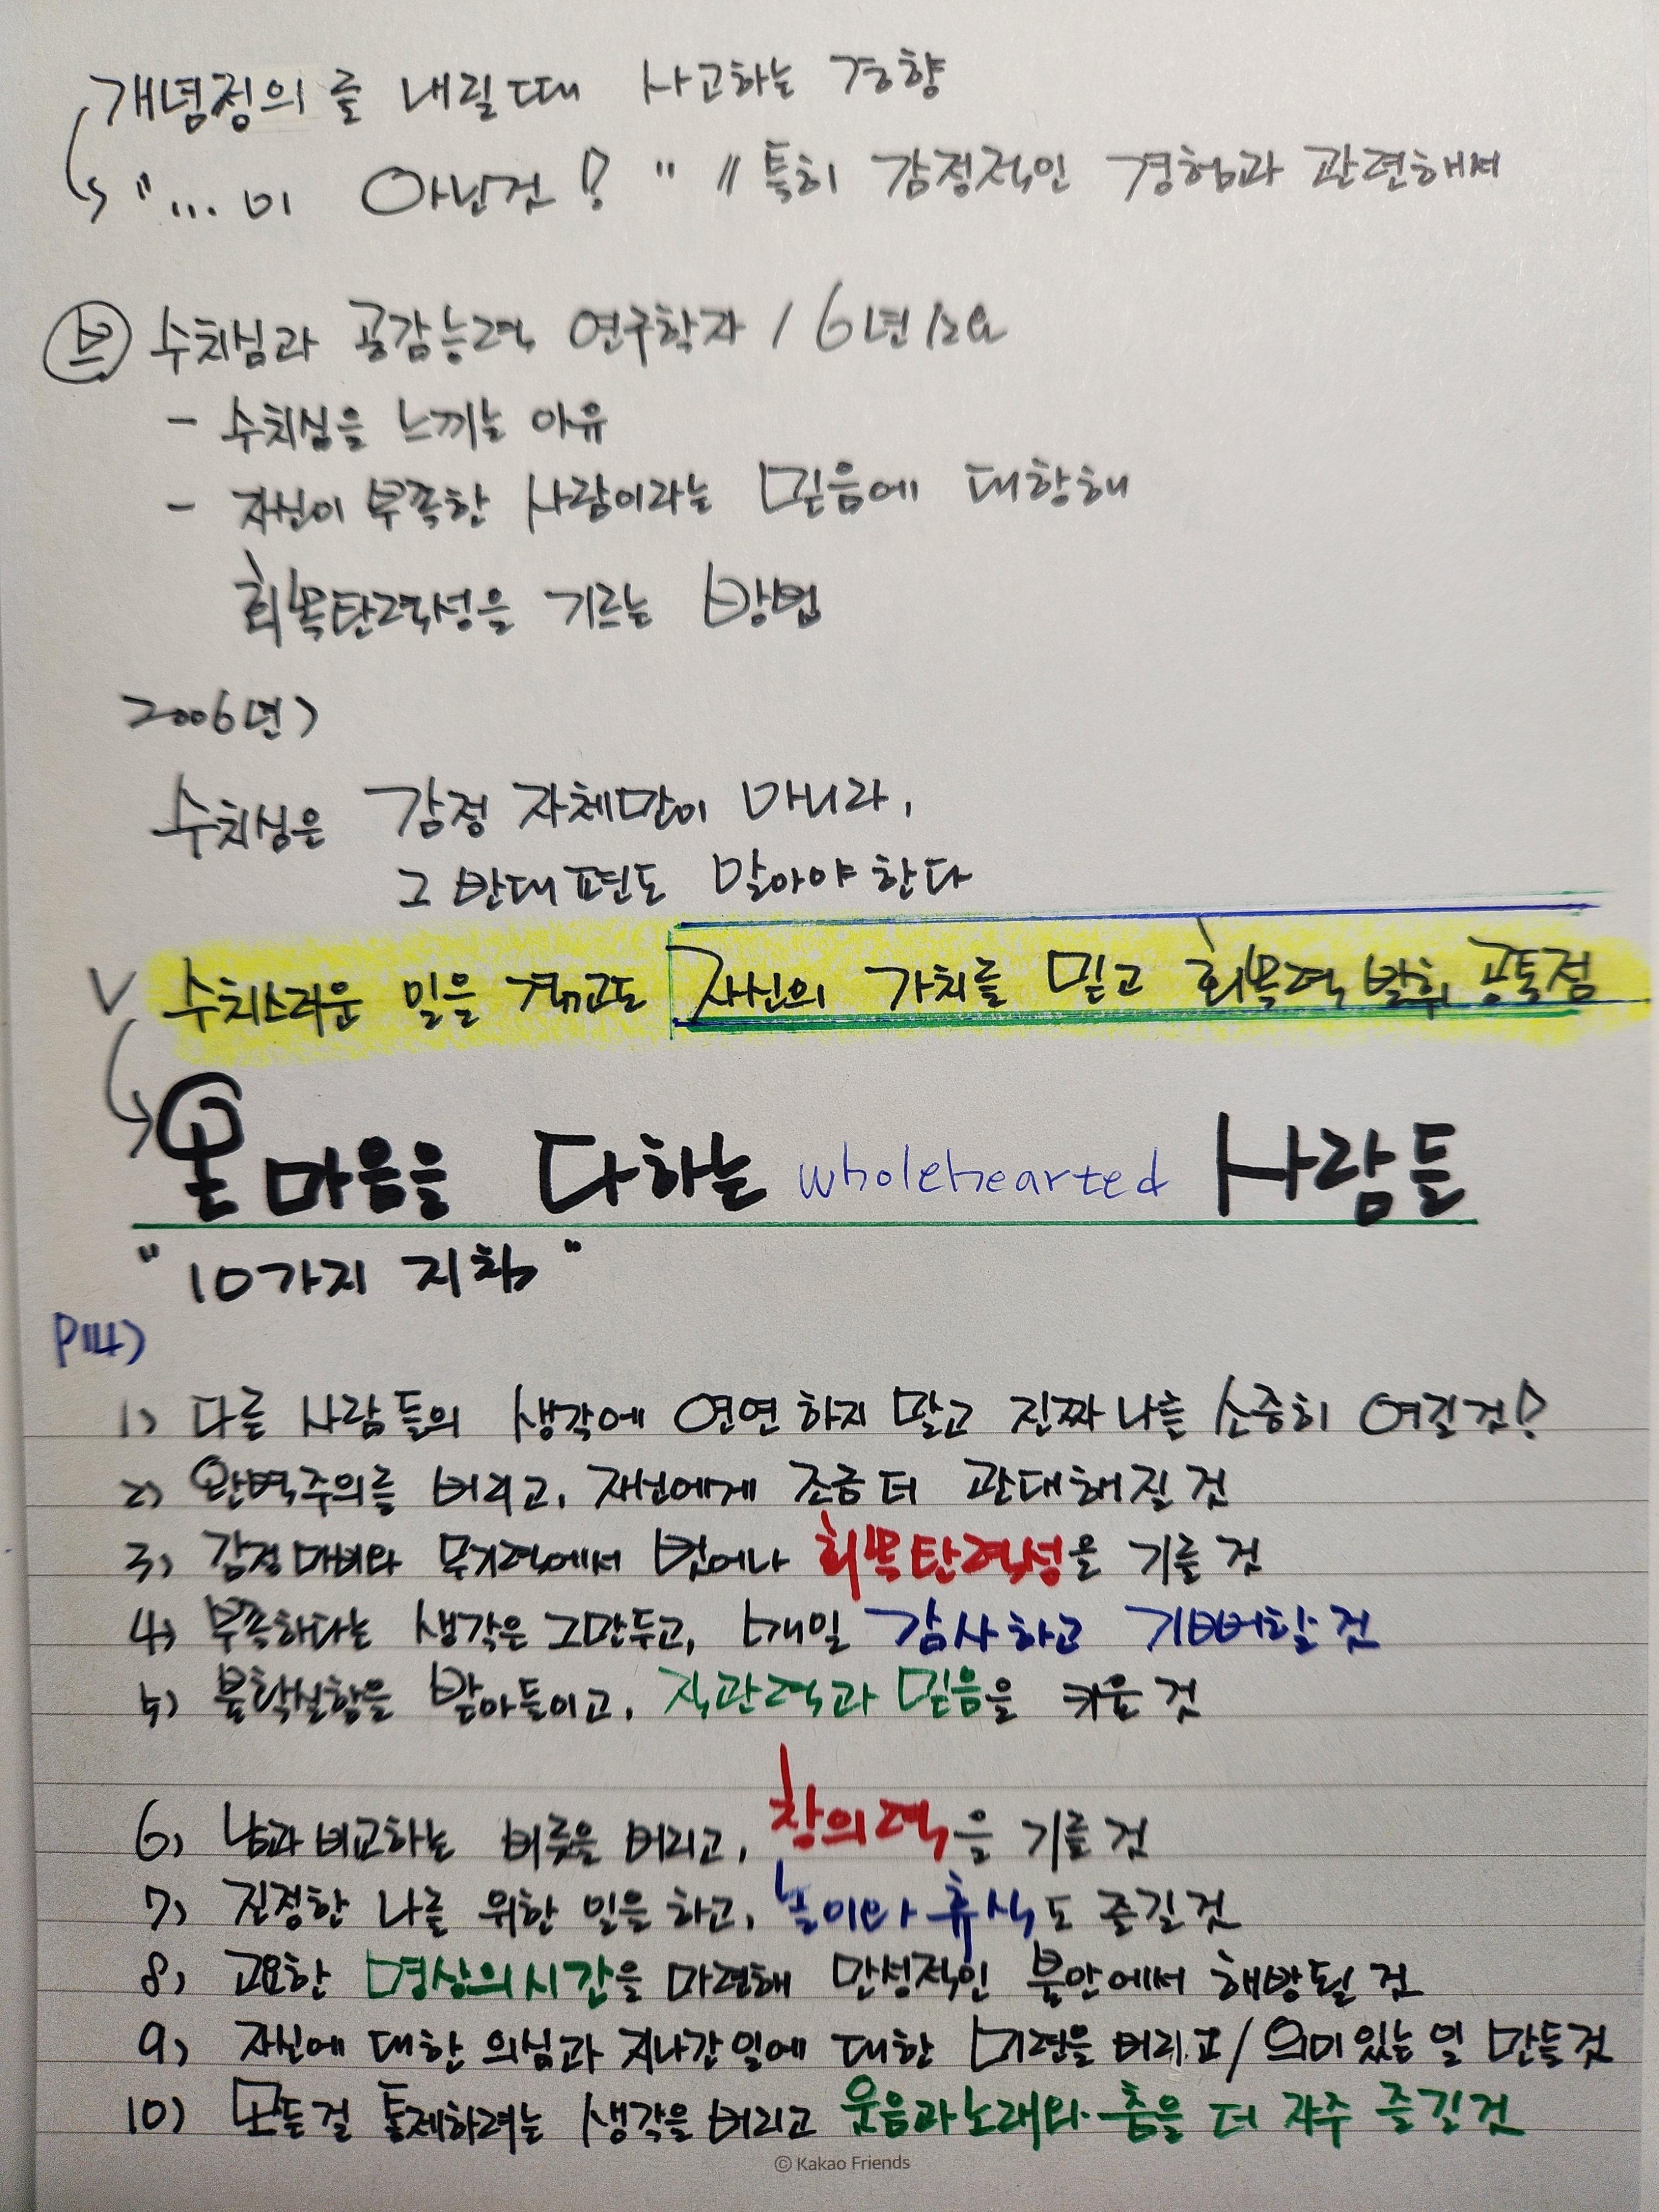 개념정의를 내릴때 사고하는 경향
"...이 아닌것!" // 특히 감정적인 경험과 관련해서
브 수치심과 공감능력 연구학자 / 6년 소요
- 수치심을 느끼는 이유
- 자신이 부족한 사람이라는 믿음에 대항해
회복탄력성을 기르는 방법
2006년)
수치심은 감정 자체만이 아니라,
그 반대편도 알아야 한다
V 수치스러운 일을 겪고도 자신의 가치를 믿고 회복력 발휘 공통점
온 마음을 다하는 wholehearted 사람들
"10가지 지침"
P114)
1) 다른 사람들의 생각에 연연하지 말고 진짜 나를 소중히 여길 것!
2) 완벽주의를 버리고, 자신에게 조금 더 관대해질 것
3) 감정마비와 무기력에서 벗어나 회복탄력성을 기를 것
4) 부족하다는 생각은 그만두고, 매일 감사하고 기뻐할 것
5) 불확실함을 받아들이고, 직관력과 믿음을 키울 것
6) 남과 비교하는 버릇을 버리고, 창의력을 기를 것
7) 진정한 나를 위한 일을 하고, 놀이와 휴식도 즐길 것
8) 고요한 명상의 시간을 마련해 만성적인 불안에서 해방될 것
9) 자신에 대한 의심과 지나간 일에 대한 미련을 버리고 / 의미있는 일 만들 것
10) 모든걸 통제하려는 생각을 버리고 웃음과 노래와 춤을 더 자주 즐길 것
© Kakao Friends